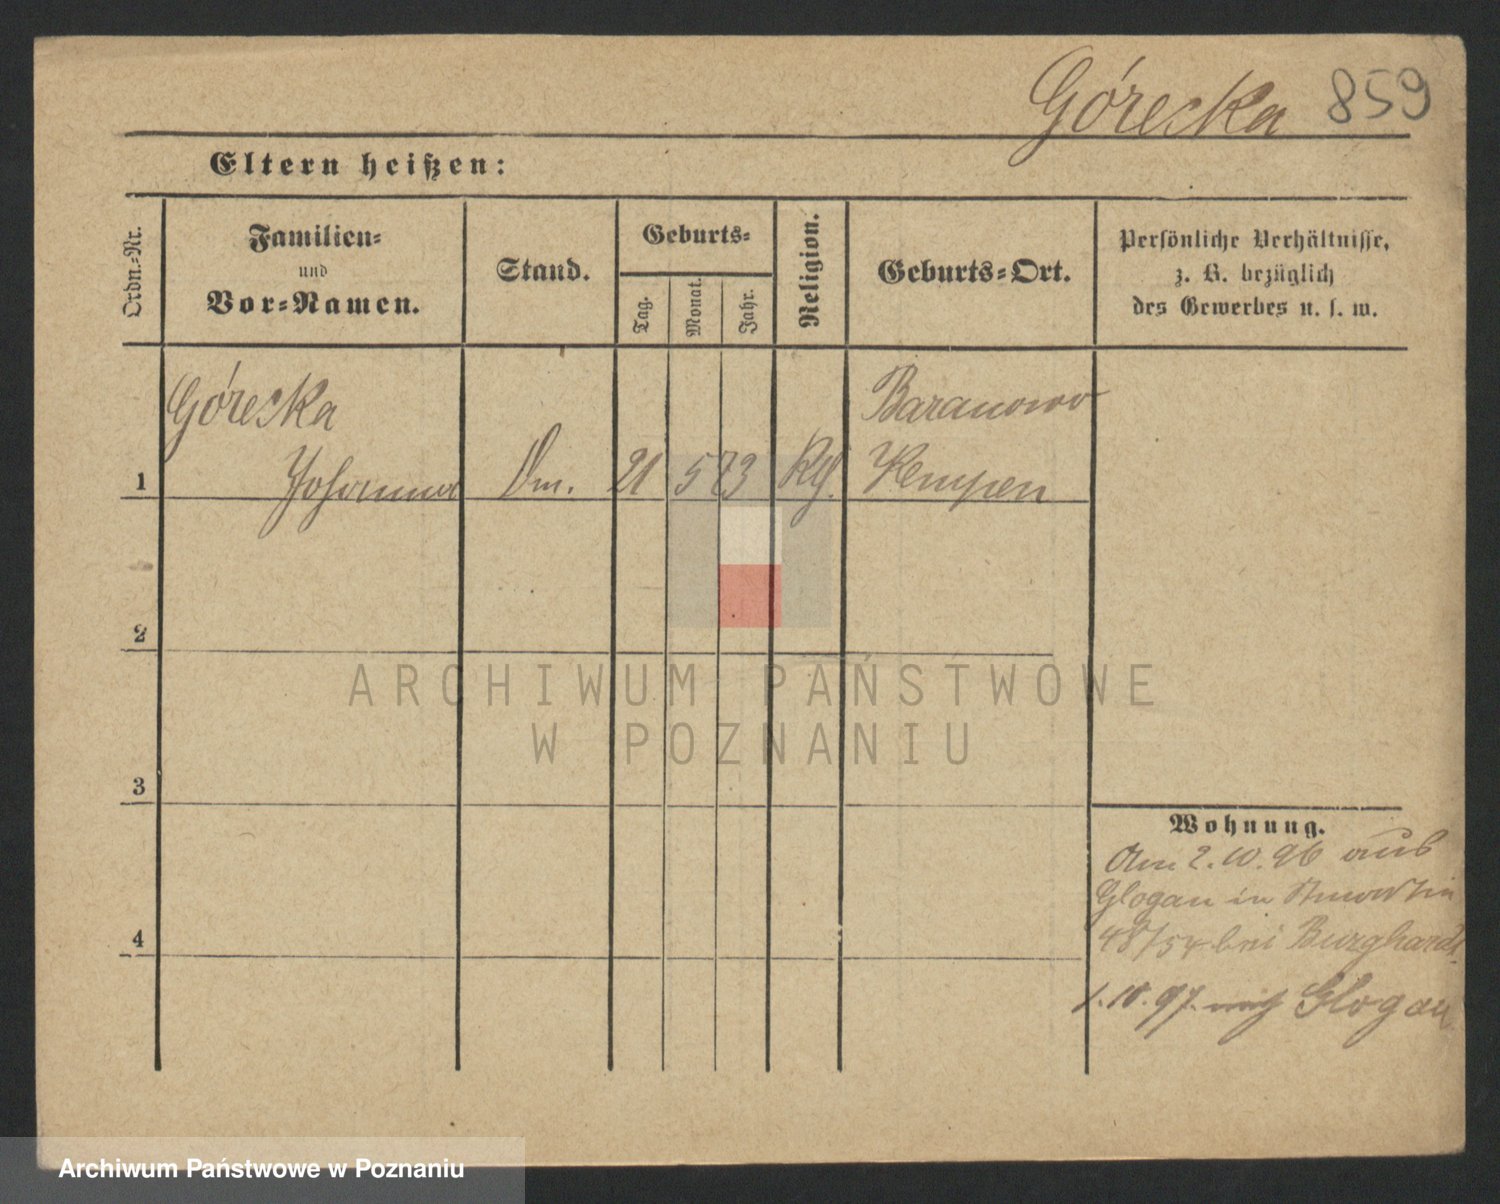 Górecka 859
Eltern heißen:
Ordn.-Nr.
Familien-
und
Vor-Namen.
Stand.
Geburts-
Tag.
Monat.
Jahr.
Religion.
Geburts-Ort.
Persönliche Verhältnisse,
z. B. bezüglich
des Gewerbes u. s. w.
Górecka
Johanna
1
21 5 73
Baranowo
Kempen
2
3
4
Wohnung.
Am 2.10.96 aus
Glogau in
48/54 bei Burghardt
1.10.97 nach Glogau
ARCHIWUM PAŃSTWOWE
W POZNANIU
Archiwum Państwowe w Poznaniu